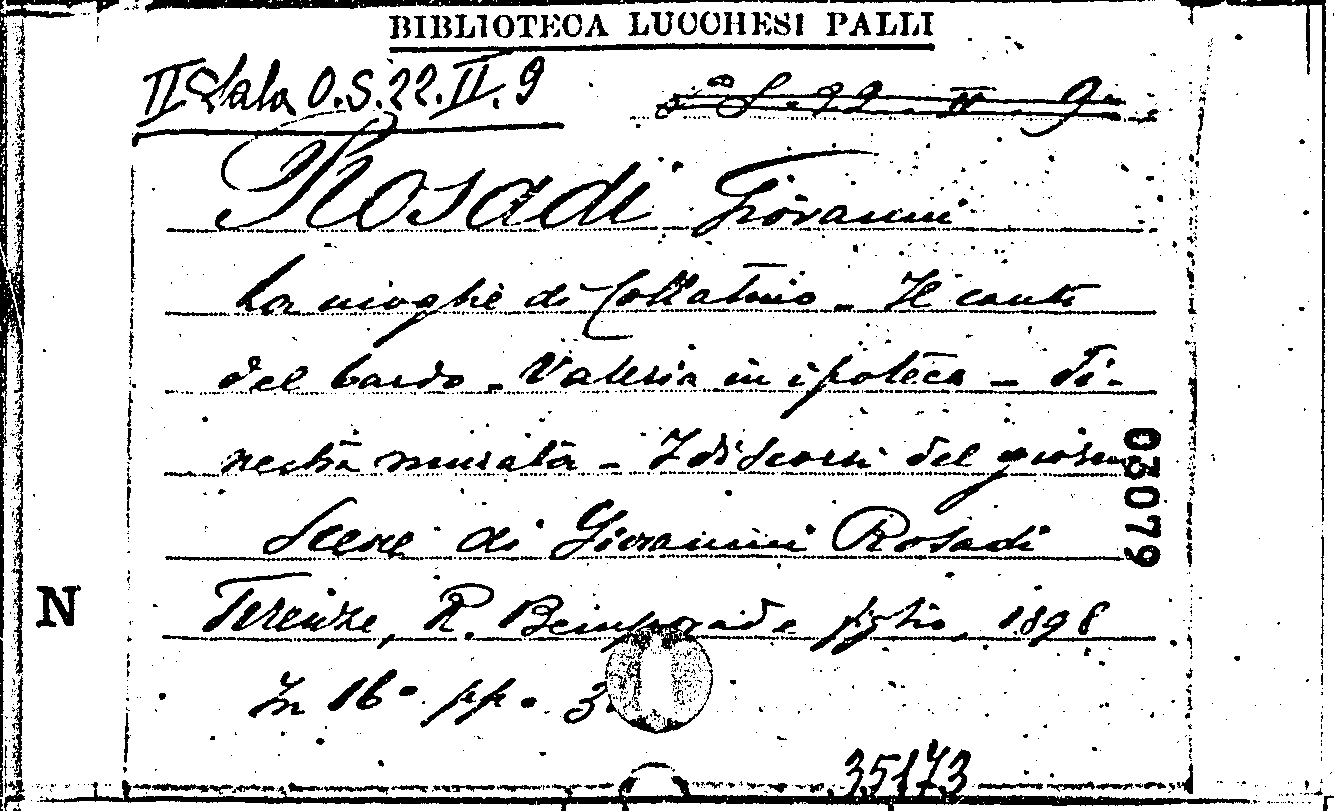 BIBLIOTECA LUCCHESI PALLI
II Sala O.S.22.II.9
2ª S. 22 II 9
Rosadi Giovanni
La moglie di Collatino - Il canto
del bardo - Valeria in ipoteca - Fi-
nestra murata - I discorsi del giorno
Scene di Giovanni Rosadi
Firenze, R. Bemporad e figlio, 1898
In 16º pp. 3
03079
N
35173